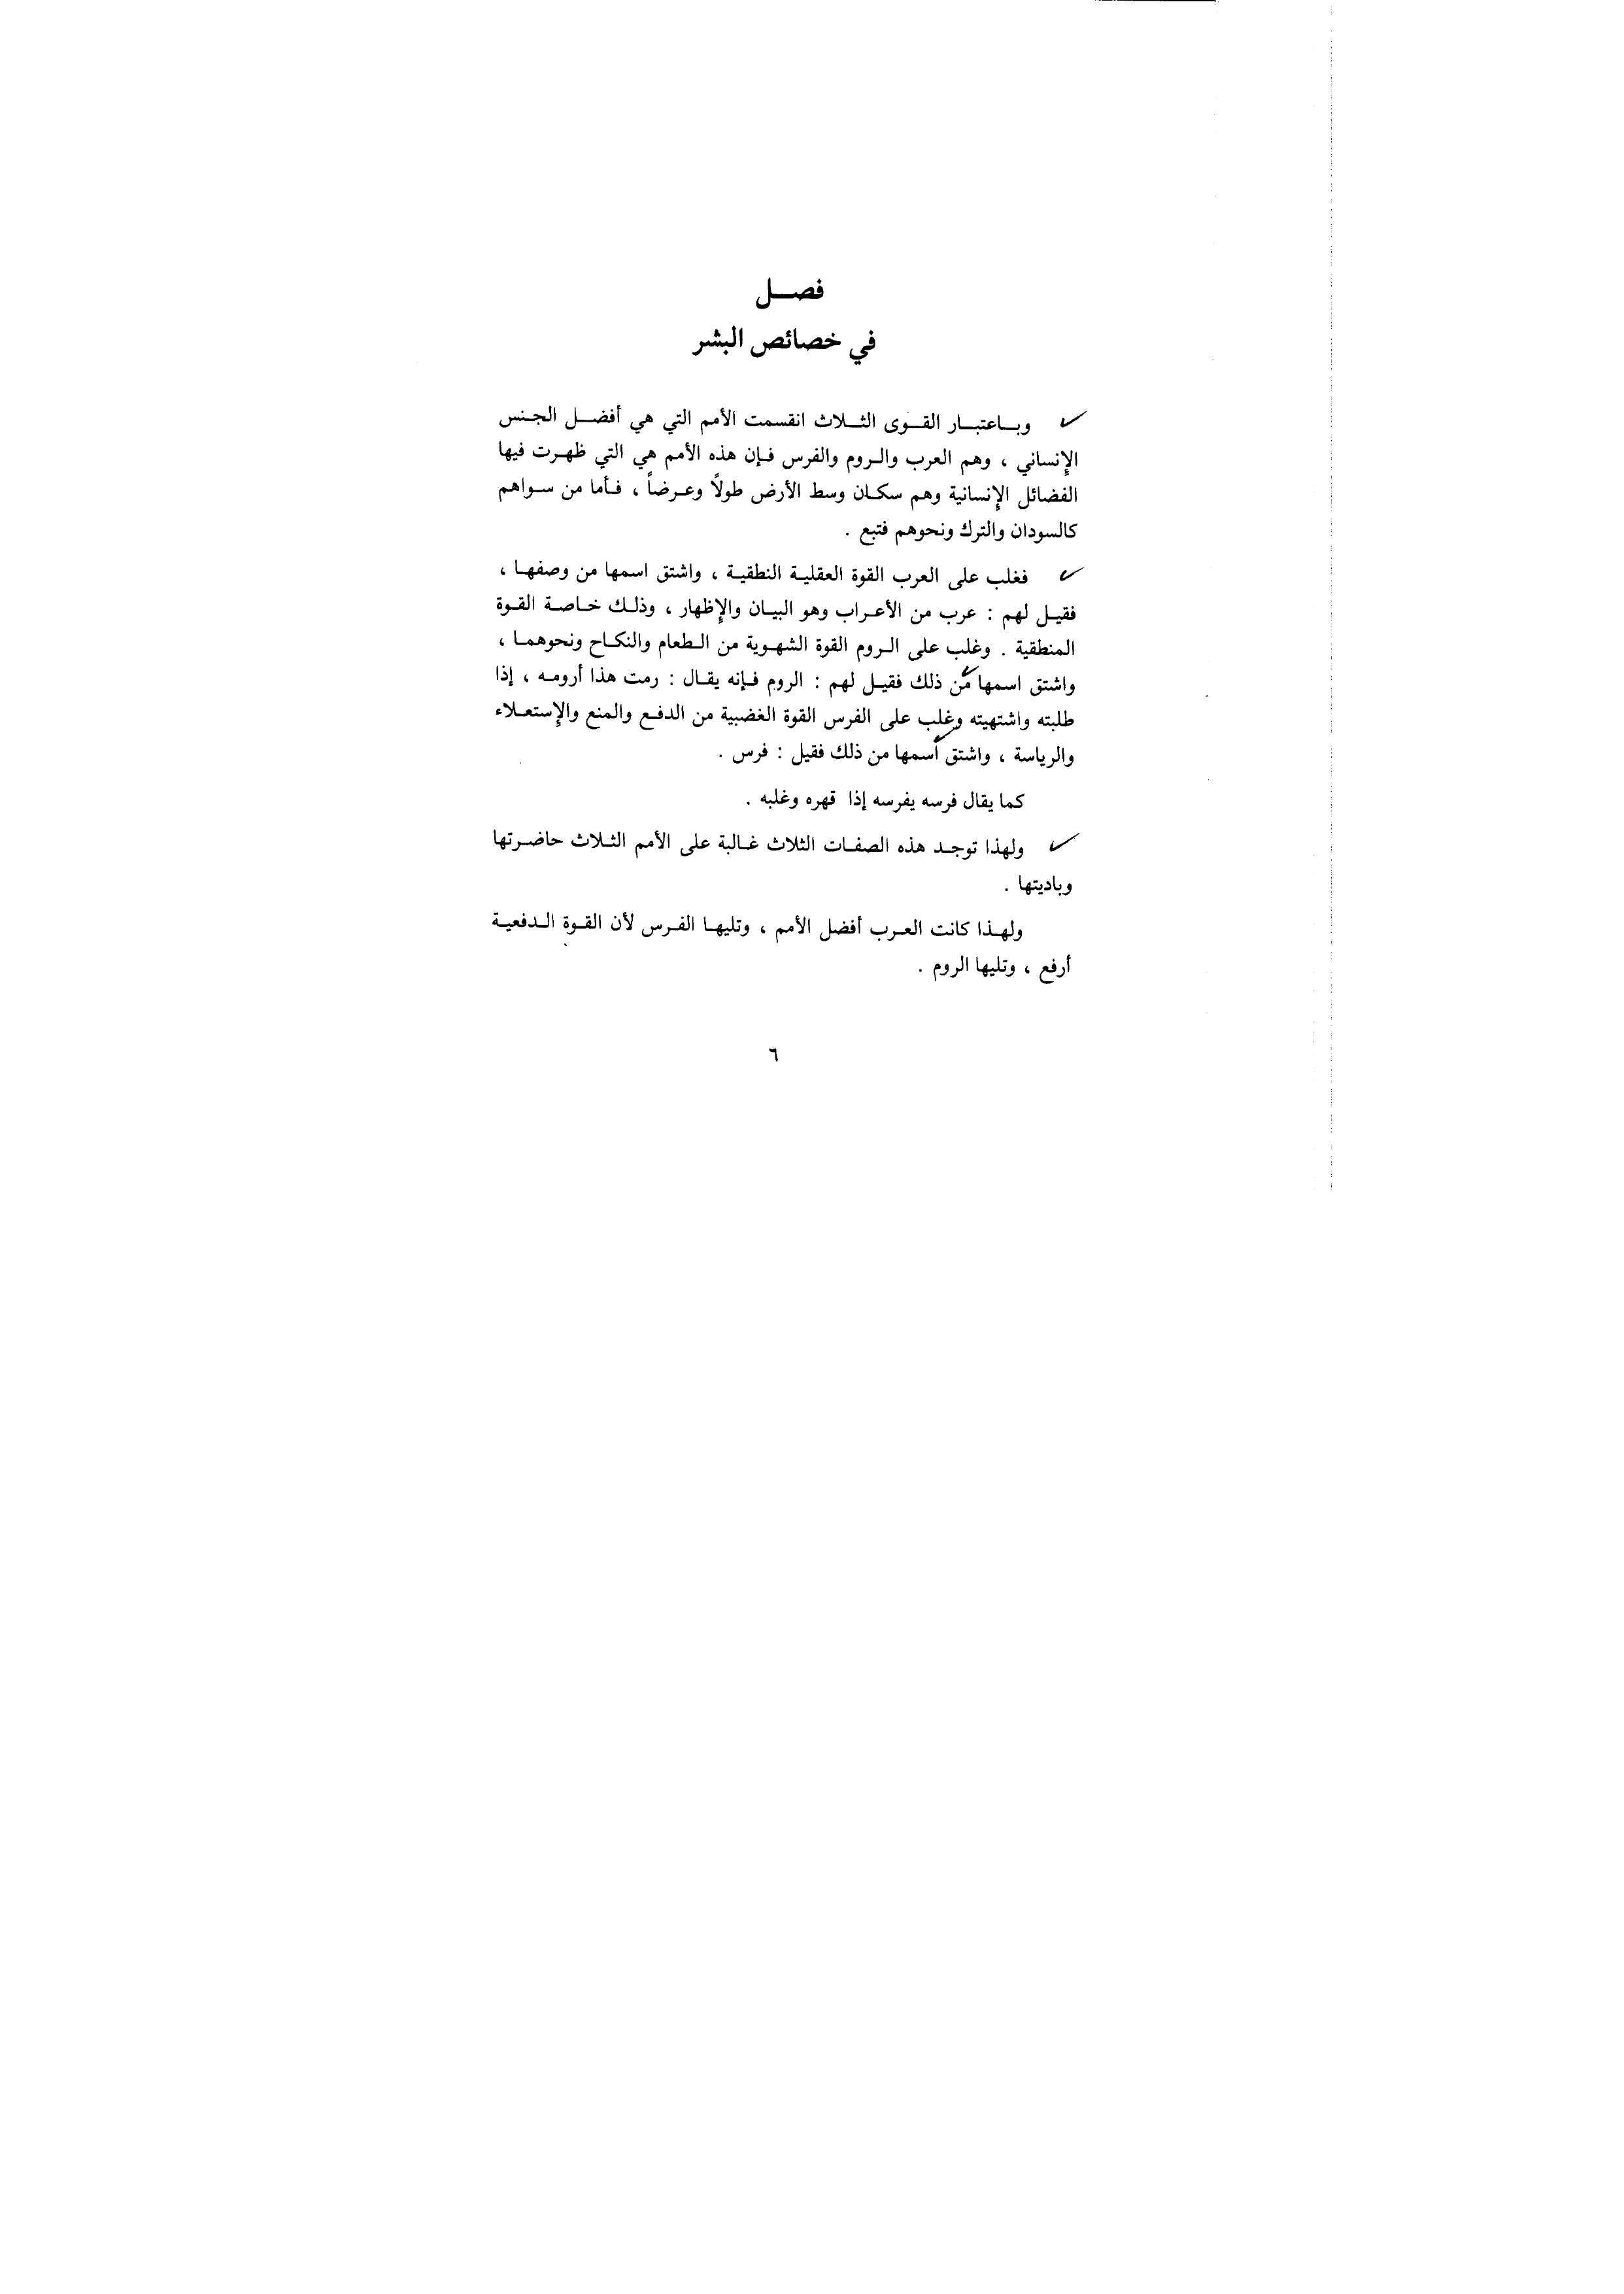 فصل
في خصائص البشر
وباعتبار القوى الثلاث انقسمت الأمم التي هي أفضل الجنس
الإنساني ، وهم العرب والروم والفرس فإن هذه الأمم هي التي ظهرت فيها
الفضائل الإنسانية وهم سكان وسط الأرض طولاً وعرضاً ، فأما من سواهم
كالسودان والترك ونحوهم فتبع .
فغلب على العرب القوة العقلية النطقية ، واشتق اسمها من وصفها ،
فقيل لهم : عرب من الأعراب وهو البيان والإظهار ، وذلك خاصة القوة
المنطقية . وغلب على الروم القوة الشهوية من الطعام والنكاح ونحوهما ،
واشتق اسمها من ذلك فقيل لهم : الروم فإنه يقال : رمت هذا أرومه ، إذا
طلبته واشتهيته وغلب على الفرس القوة الغضبية من الدفع والمنع والإستعلاء
والرياسة ، واشتق أسمها من ذلك فقيل : فرس .
كما يقال فرسه يفرسه إذا قهره وغلبه .
ولهذا توجد هذه الصفات الثلاث غالبة على الأمم الثلاث حاضرتها
وباديتها .
ولهذا كانت العرب أفضل الأمم ، وتليها الفرس لأن القوة الدفعية
أرفع ، وتليها الروم .
٦